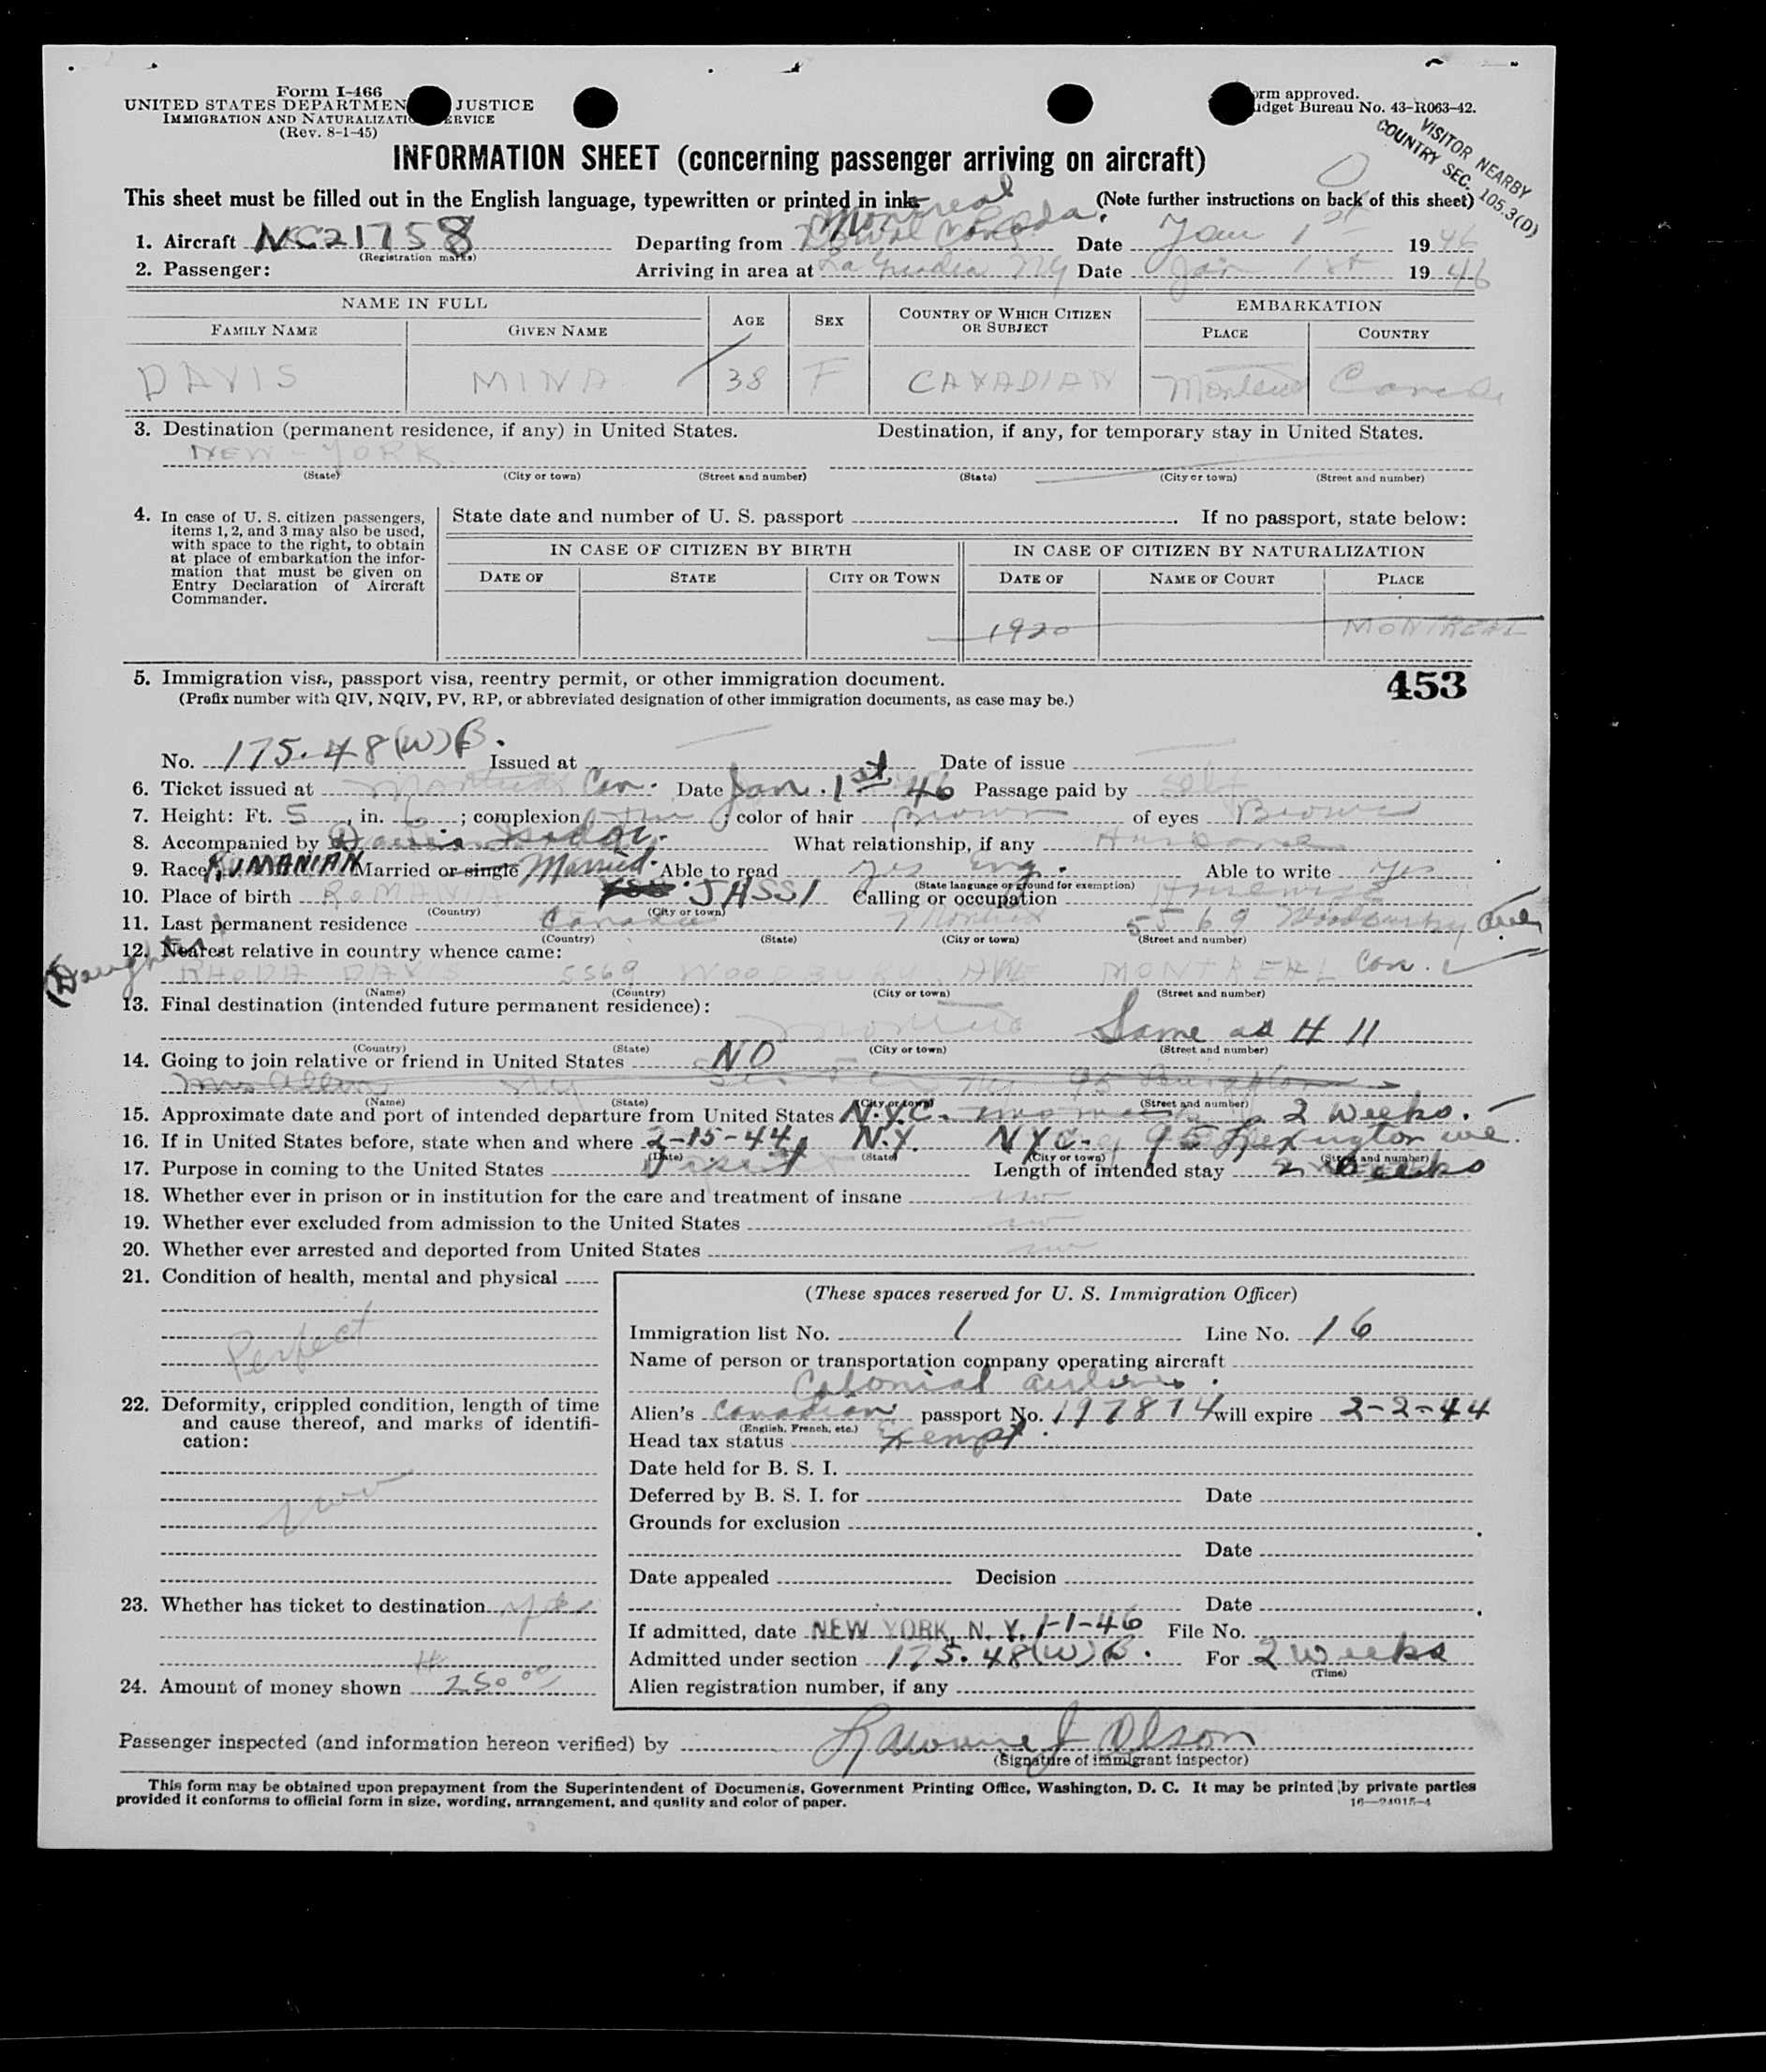 Form I-466
UNITED STATES DEPARTMEN JUSTICE
IMMIGRATION AND NATURALIZATIO ERVICE
(Rev. 8-1-45)
orm approved.
udget Bureau No. 43-R063-42.
VISITOR NEARBY
COUNTRY SEC. 105.3(D)
INFORMATION SHEET (concerning passenger arriving on aircraft)
This sheet must be filled out in the English language, typewritten or printed in ink. (Note further instructions on back of this sheet)
Montreal
1. Aircraft NC21758 Departing from Canada. Date Jan 1st 1946
(Registration marks)
2. Passenger: Arriving in area at La Guardia NY Date Jan 1st 1946
NAME IN FULL AGE SEX COUNTRY OF WHICH CITIZEN OR SUBJECT EMBARKATION
FAMILY NAME GIVEN NAME PLACE COUNTRY
DAVIS MINA 38 F CANADIAN Montreal Canada
3. Destination (permanent residence, if any) in United States. Destination, if any, for temporary stay in United States.
NEW-YORK
(State) (City or town) (Street and number) (State) (City or town) (Street and number)
4. In case of U. S. citizen passengers, items 1, 2, and 3 may also be used, with space to the right, to obtain at place of embarkation the information that must be given on Entry Declaration of Aircraft Commander.
State date and number of U. S. passport . If no passport, state below:
IN CASE OF CITIZEN BY BIRTH IN CASE OF CITIZEN BY NATURALIZATION
DATE OF STATE CITY OR TOWN DATE OF NAME OF COURT PLACE
1920 MONTREAL
5. Immigration visa, passport visa, reentry permit, or other immigration document. 453
(Prefix number with QIV, NQIV, PV, RP, or abbreviated designation of other immigration documents, as case may be.)
No. 175.48(W)B. Issued at Date of issue
6. Ticket issued at Montreal Can. Date Jan. 1st 46 Passage paid by self
7. Height: Ft. 5, in. 6; complexion ; color of hair Brown of eyes Brown
8. Accompanied by Davis What relationship, if any Husband
9. Race RUMANIAN Married or single Married. Able to read yes Eng. Able to write yes
(State language or ground for exemption)
10. Place of birth ROMANIA JASSI Calling or occupation Housewife
(Country) (City or town)
11. Last permanent residence Canada Montreal 5569 Woodbury Ave
(Country) (State) (City or town) (Street and number)
12. Nearest relative in country whence came:
(Daughter) RHODA DAVIS 5569 WOODBURY AVE MONTREAL Can.
(Name) (Country) (City or town) (Street and number)
13. Final destination (intended future permanent residence):
Montreal Same as # 11
(Country) (State) (City or town) (Street and number)
14. Going to join relative or friend in United States NO
Mrs Allen NY
(Name) (State) (City or town) (Street and number)
15. Approximate date and port of intended departure from United States N.Y.C. 2 Weeks.
16. If in United States before, state when and where 2-15-44, N.Y. NYC. 95 Lexington ave.
(Date) (State) (City or town) (Street and number)
17. Purpose in coming to the United States Visit Length of intended stay 2 Weeks
18. Whether ever in prison or in institution for the care and treatment of insane no
19. Whether ever excluded from admission to the United States no
20. Whether ever arrested and deported from United States no
21. Condition of health, mental and physical
Perfect
22. Deformity, crippled condition, length of time and cause thereof, and marks of identification:
23. Whether has ticket to destination yes
24. Amount of money shown # 250 00
(These spaces reserved for U. S. Immigration Officer)
Immigration list No. 1 Line No. 16
Name of person or transportation company operating aircraft
Colonial airlines.
Alien's Canadian passport No. 197874 will expire 2-2-44
(English, French, etc.)
Head tax status Exempt.
Date held for B. S. I.
Deferred by B. S. I. for Date
Grounds for exclusion
Date
Date appealed Decision
Date
If admitted, date NEW YORK, N. Y. 1-1-46 File No.
Admitted under section 175.48(W)B. For 2 weeks
(Time)
Alien registration number, if any
Passenger inspected (and information hereon verified) by Olson
(Signature of immigrant inspector)
This form may be obtained upon prepayment from the Superintendent of Documents, Government Printing Office, Washington, D. C. It may be printed by private parties
provided it conforms to official form in size, wording, arrangement, and quality and color of paper. 16—24015-4